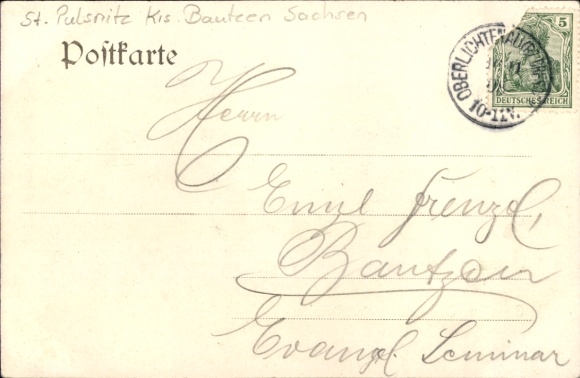 St. Pulsnitz Krs. Bautzen Sachsen
Postkarte
5
DEUTSCHES REICH
OBERLICHTENAU
10-11V.
Herrn
Emil Frenzel,
Bautzen
Evangl. Seminar